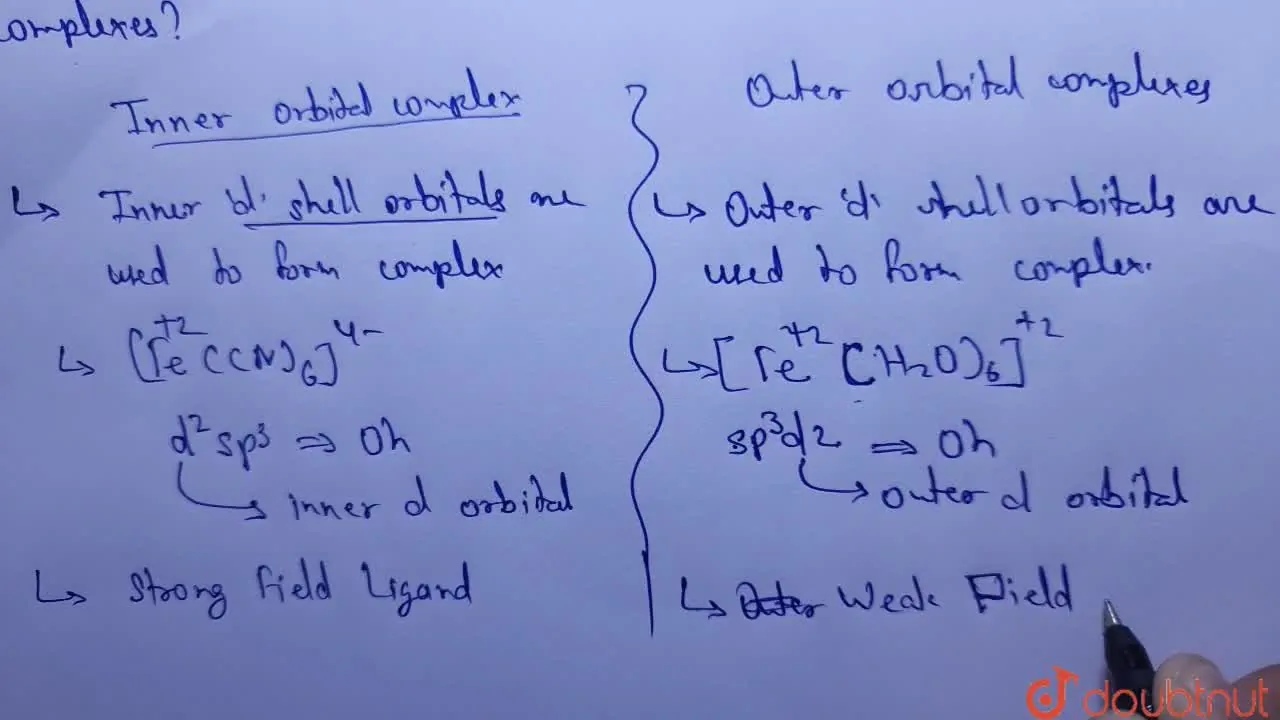 complexes?
Inner orbital complex
↳ Inner 'd' shell orbitals are
used to form complex
↳ [Fe⁺² (CN)₆]⁴⁻
d² sp³ ⇒ Oh
↳ inner d orbital
↳ Strong field Ligand
Outer orbital complexes
↳ Outer 'd' shell orbitals are
used to form complex.
↳ [Fe⁺² (H₂O)₆]⁺²
sp³d2 ⇒ Oh
↳ outer d orbital
↳ Outer Weak Field
doubtnut